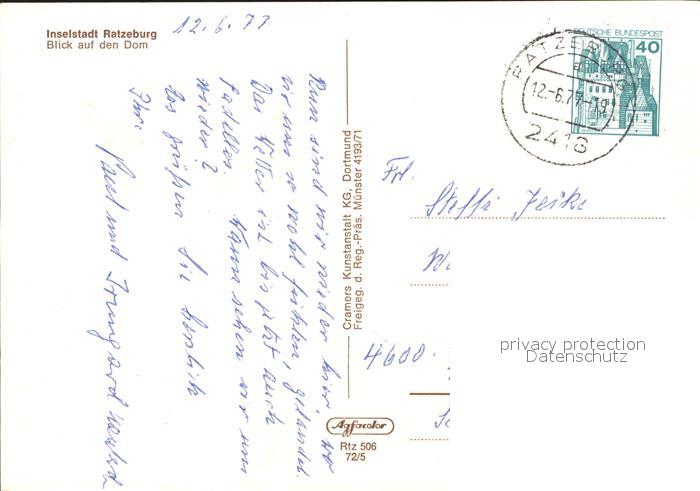 Inselstadt Ratzeburg
Blick auf den Dom
12.6.77
Nun sind wir wieder hier, wo
wir uns so wohl fühlen, gelandet.
Das Wetter ist bis jetzt auch
tadellos. Wann sehen wir uns
wieder?
Es grüßen Sie herzlich
Ihre
Paul und Irmgard
Cramers Kunstanstalt KG, Dortmund
Freigeg. d. Reg.-Präs. Münster 4193/71
DEUTSCHE BUNDESPOST
40
RATZEBURG
12.-6.77-19
2418
Frl.
Steffi
4600
privacy protection
Datenschutz
Agfacolor
Rtz 506
72/5